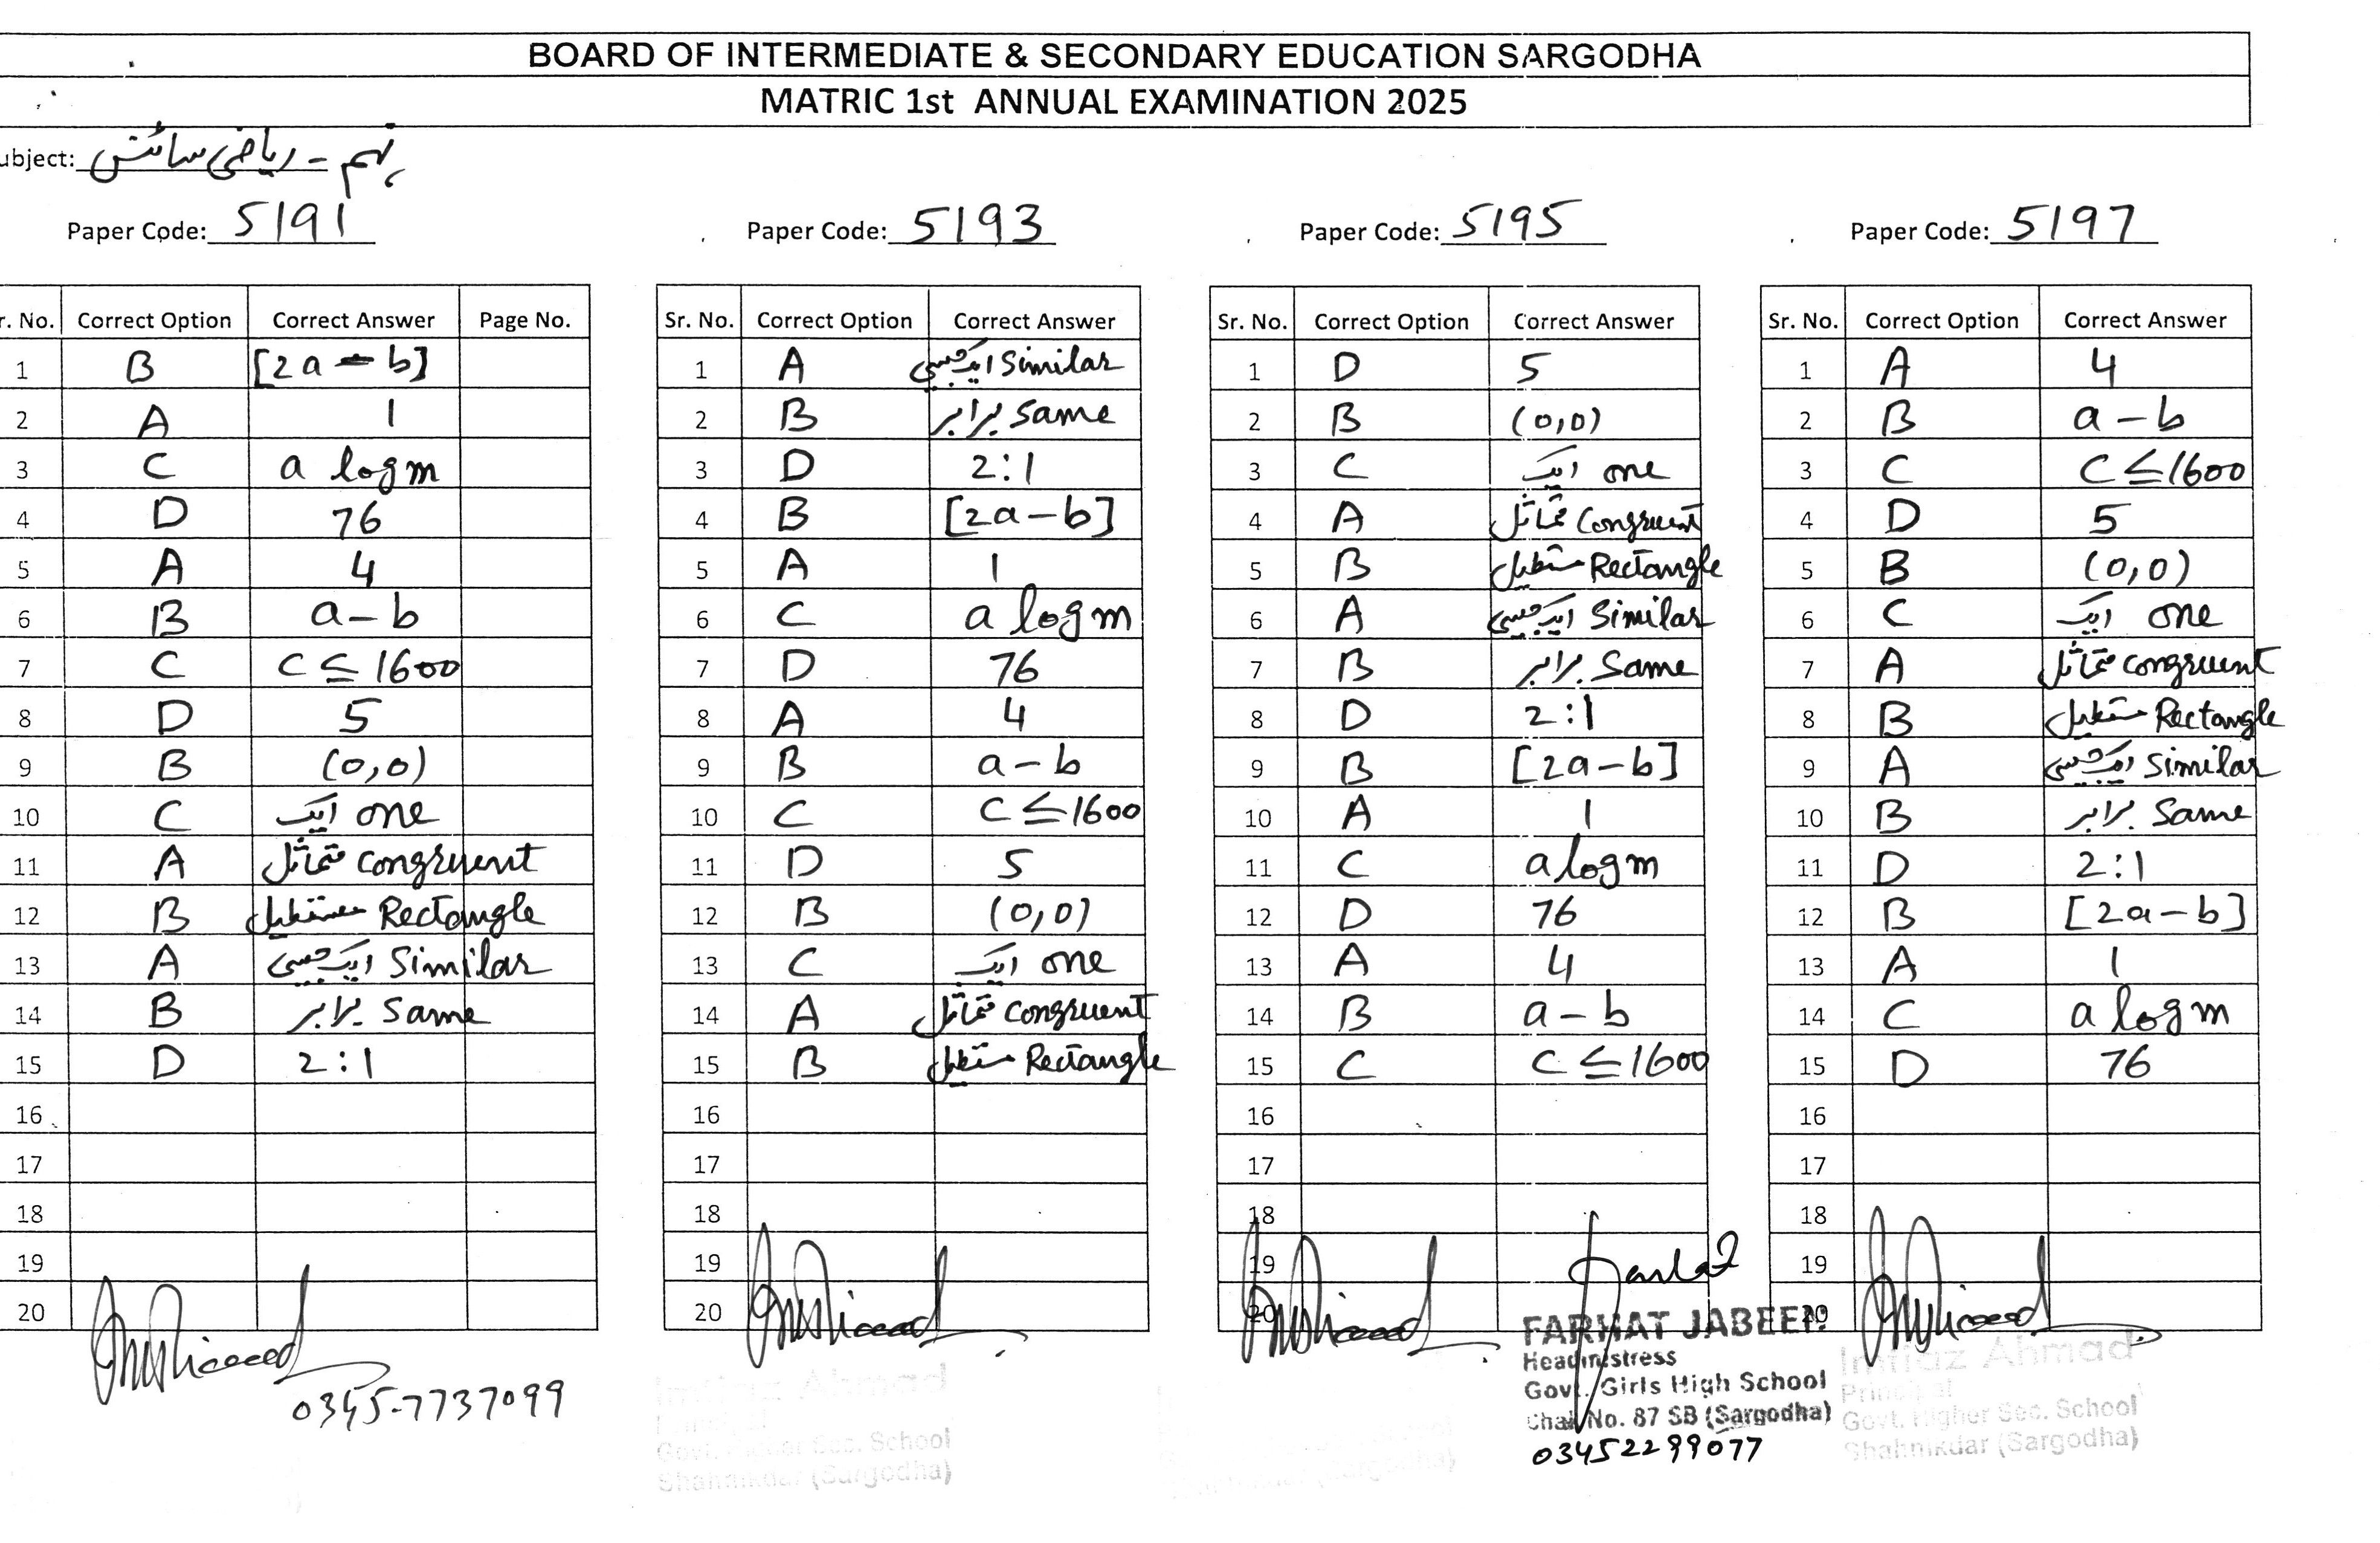 BOARD OF INTERMEDIATE & SECONDARY EDUCATION SARGODHA
MATRIC 1st ANNUAL EXAMINATION 2025
ubject: نہم - ریاضی سائنس
Paper Code: 5191
r. No. Correct Option Correct Answer Page No.
1 B [2a - b]
2 A 1
3 C a log m
4 D 76
5 A 4
6 B a - b
7 C C ≤ 1600
8 D 5
9 B (0,0)
10 C ایک one
11 A متماثل congruent
12 B مستطیل Rectangle
13 A ایک جیسی Similar
14 B برابر Same
15 D 2:1
16
17
18
19
20
0345-7737099
Paper Code: 5193
Sr. No. Correct Option Correct Answer
1 A ایک جیسی Similar
2 B برابر Same
3 D 2:1
4 B [2a - b]
5 A 1
6 C a log m
7 D 76
8 A 4
9 B a - b
10 C C ≤ 1600
11 D 5
12 B (0,0)
13 C ایک one
14 A متماثل congruent
15 B مستطیل Rectangle
16
17
18
19
20
Imtiaz Ahmad
Principal
Govt. Higher Sec. School
Shahnikdar (Sargodha)
Paper Code: 5195
Sr. No. Correct Option Correct Answer
1 D 5
2 B (0,0)
3 C ایک one
4 A متماثل Congruent
5 B مستطیل Rectangle
6 A ایک جیسی Similar
7 B برابر Same
8 D 2:1
9 B [2a - b]
10 A 1
11 C a log m
12 D 76
13 A 4
14 B a - b
15 C C ≤ 1600
16
17
18
19
20
FARHAT JABEEN
Headmistress
Govt. Girls High School
Chak No. 87 SB (Sargodha)
03452299077
Paper Code: 5197
Sr. No. Correct Option Correct Answer
1 A 4
2 B a - b
3 C C ≤ 1600
4 D 5
5 B (0,0)
6 C ایک one
7 A متماثل congruent
8 B مستطیل Rectangle
9 A ایک جیسی Similar
10 B برابر Same
11 D 2:1
12 B [2a - b]
13 A 1
14 C a log m
15 D 76
16
17
18
19
20
Imtiaz Ahmad
Principal
Govt. Higher Sec. School
Shahnikdar (Sargodha)